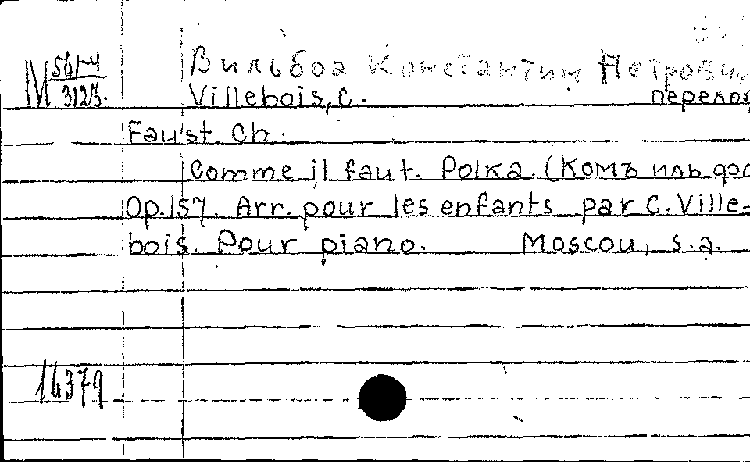 Вильбоа Константин Петрович
М 561-4 / 3123.
Villebois, C. перелож
Faust. Ch.
Comme il faut. Polka. (Комъ иль фо
Op.157. Arr. pour les enfants par C. Ville-
bois. Pour piano. Moscou, s.a.
16379